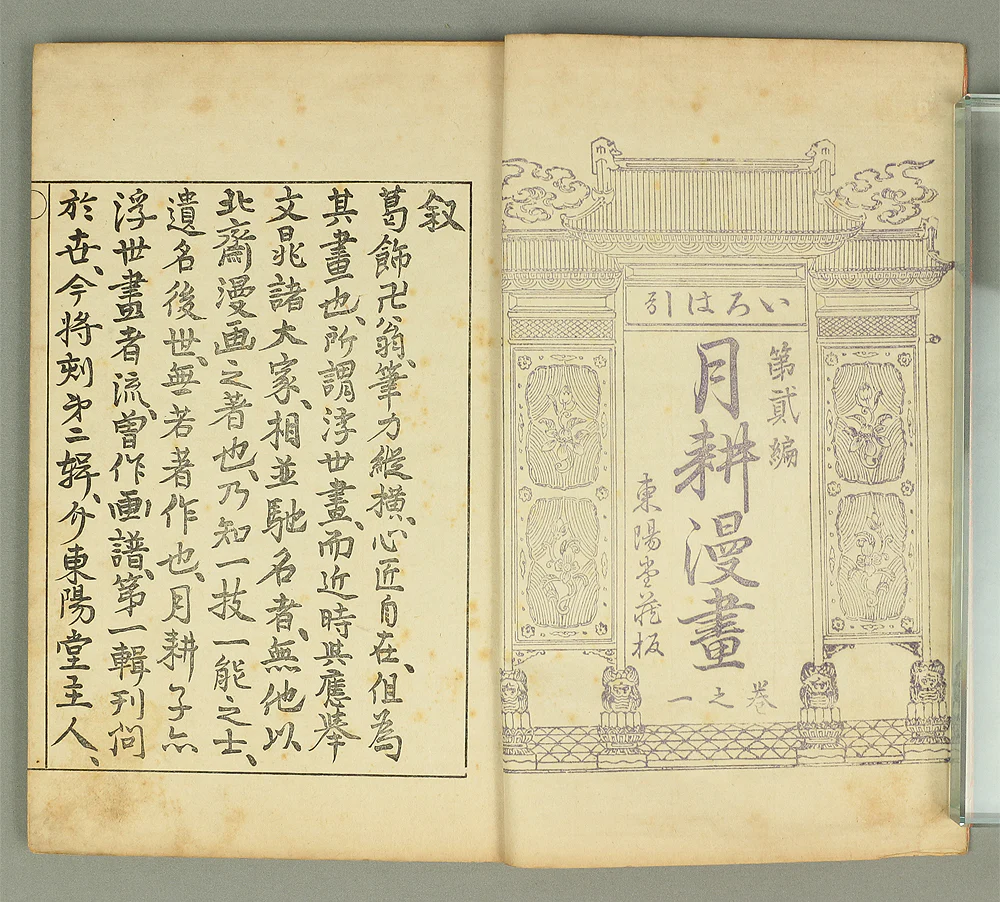 いろは引
第貳編
月耕漫畫
卷之一
東陽堂蔵板
叙
葛飾卍翁、筆力縱橫、心匠自在、但為
其畫也、所謂浮世畫、而近時與應擧
文晁諸大家、相並馳名者、無他以
北齋漫画之著也、乃知一技一能之士、
遺名後世、無若著作也、月耕子亦
浮世畫者流、曽作画譜、第一輯刊問
於世、今将刻第二輯、介東陽堂主人、